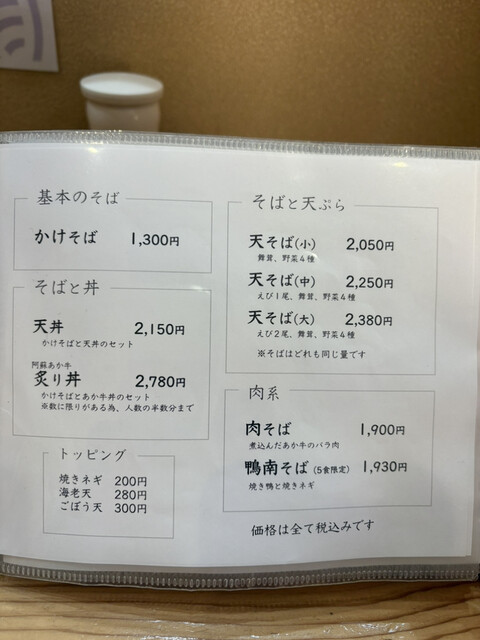 基本のそば
かけそば 1,300円
そばと丼
天丼 2,150円
かけそばと天丼のセット
阿蘇あか牛
炙り丼 2,780円
かけそばとあか牛丼のセット
※数に限りがある為、人数の半数分まで
トッピング
焼きネギ 200円
海老天 280円
ごぼう天 300円
そばと天ぷら
天そば(小) 2,050円
舞茸、野菜4種
天そば(中) 2,250円
えび1尾、舞茸、野菜4種
天そば(大) 2,380円
えび2尾、舞茸、野菜4種
※そばはどれも同じ量です
肉系
肉そば 1,900円
煮込んだあか牛のバラ肉
鴨南そば(5食限定) 1,930円
焼き鴨と焼きネギ
価格は全て税込みです